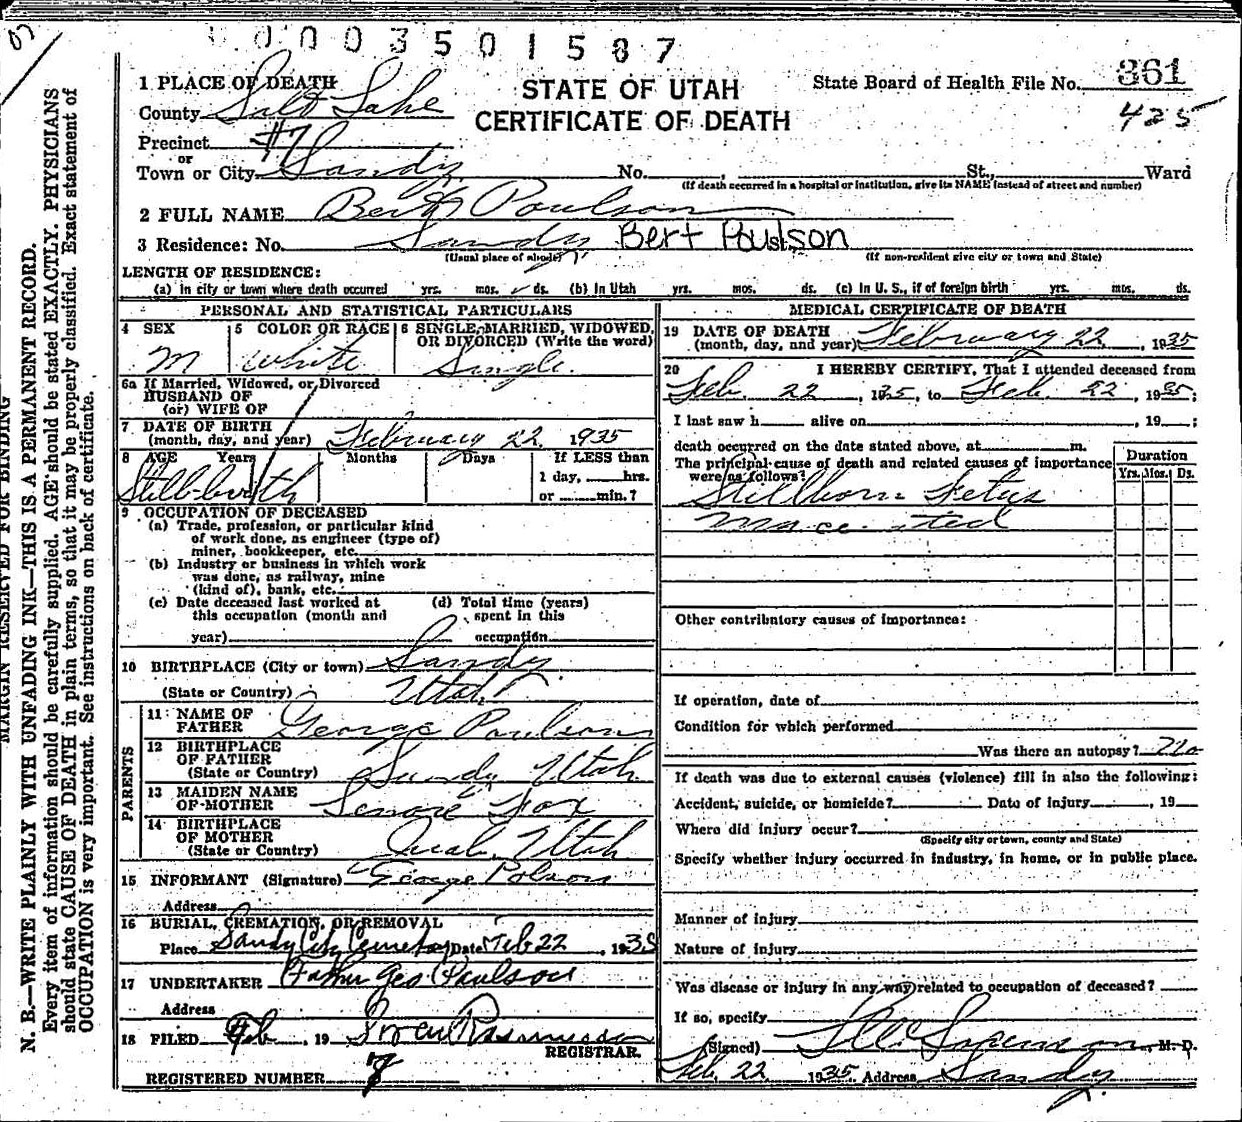 0 0 0 3 5 0 1 5 8 7
1 PLACE OF DEATH
County Salt Lake
Precinct #7
or
Town or City Sandy No. St., Ward
(If death occurred in a hospital or institution, give its NAME instead of street and number)
STATE OF UTAH
CERTIFICATE OF DEATH
State Board of Health File No. 361
425
2 FULL NAME Bert Poulson
3 Residence: No. Sandy Bert Poulson
(Usual place of abode) (If non-resident give city or town and State)
LENGTH OF RESIDENCE:
(a) in city or town where death occurred yrs. mos. ds. (b) In Utah yrs. mos. ds. (c) In U. S., if of foreign birth yrs. mos. ds.
PERSONAL AND STATISTICAL PARTICULARS
4 SEX M
5 COLOR OR RACE white
6 SINGLE, MARRIED, WIDOWED, OR DIVORCED (Write the word) Single.
6a If Married, Widowed, or Divorced
HUSBAND OF
(or) WIFE OF
7 DATE OF BIRTH
(month, day, and year) February 22 1935
8 AGE Years Months Days If LESS than
1 day, hrs.
or min.?
Still-birth
9 OCCUPATION OF DECEASED
(a) Trade, profession, or particular kind
of work done, as engineer (type of)
miner, bookkeeper, etc.
(b) Industry or business in which work
was done, as railway, mine
(kind of), bank, etc.
(c) Date deceased last worked at
this occupation (month and
year)
(d) Total time (years)
spent in this
occupation
10 BIRTHPLACE (City or town) Sandy
(State or Country) Utah
PARENTS
11 NAME OF
FATHER George Poulson
12 BIRTHPLACE
OF FATHER
(State or Country) Sandy Utah
13 MAIDEN NAME
OF MOTHER Lenore Fox
14 BIRTHPLACE
OF MOTHER
(State or Country) Utah
15 INFORMANT (Signature) George
Address
16 BURIAL, CREMATION, OR REMOVAL
Place Sandy City Cemetery Date Feb 22, 1935
17 UNDERTAKER Father Geo Paulson
Address
18 FILED Feb 19 Rasmussen
REGISTRAR.
REGISTERED NUMBER 8
MEDICAL CERTIFICATE OF DEATH
19 DATE OF DEATH
(month, day, and year) February 22, 1935
20 I HEREBY CERTIFY, That I attended deceased from
Feb. 22, 1935, to Feb. 22, 1935;
I last saw h alive on , 19 ;
death occurred on the date stated above, at m.
The principal cause of death and related causes of importance
were as follows:
Duration
Yrs. Mos. Ds.
Stillborn Fetus
Macerated
Other contributory causes of importance:
If operation, date of
Condition for which performed
Was there an autopsy? no
If death was due to external causes (violence) fill in also the following:
Accident, suicide, or homicide? Date of injury , 19
Where did injury occur?
(Specify city or town, county and State)
Specify whether injury occurred in industry, in home, or in public place.
Manner of injury
Nature of injury
Was disease or injury in any way related to occupation of deceased?
If so, specify
(Signed) Sorenson, M. D.
Feb. 22 1935 Address Sandy
MARGIN RESERVED FOR BINDING
N. B.—WRITE PLAINLY WITH UNFADING INK—THIS IS A PERMANENT RECORD.
Every item of information should be carefully supplied. AGE should be stated EXACTLY. PHYSICIANS
should state CAUSE OF DEATH in plain terms, so that it may be properly classified. Exact statement of
OCCUPATION is very important. See instructions on back of certificate.